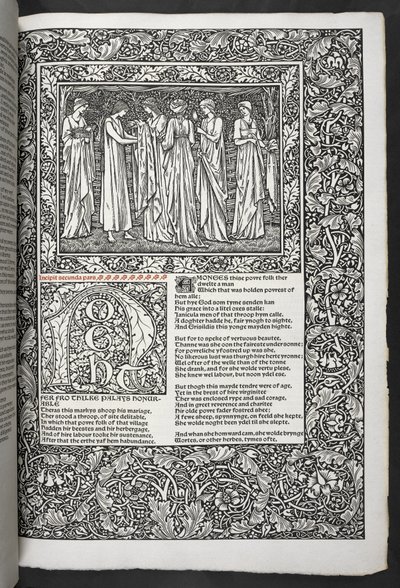 Incipit secunda pars
Noght
FER FRO THILKE PALAYS HONUR-
ABLE
Theras this markys shoop his mariage,
Ther stood a throop, of site delitable,
In which that povre folk of that village
Hadden hir beestes and hir herbergage,
And of hire labour tooke hir sustenance,
After that the erthe yaf hem habundance.
AMONGES thise povre folk ther
dwelte a man
Which that was holden povrest of
hem alle;
But hye God som tyme senden kan
His grace into a litel oxes stalle:
Janicula men of that throop hym calle.
A doghter hadde he, fair ynogh to sighte,
And Grisildis this yonge mayden highte.
But for to speke of vertuous beautee,
Thanne was she oon the faireste undersonne;
For povreliche yfostred up was she,
No likerous lust was thurgh hire herte yronne;
Wel ofter of the welle than of the tonne
She drank, and for she wolde vertu plese,
She knew wel labour, but noon ydel ese.
But thogh this mayde tendre were of age,
Yet in the brest of hire virginitee
Ther was enclosed rype and sad corage,
And in greet reverence and charitee
Hir olde povre fader fostred shee;
A fewe sheep, spynnynge, on feeld she kepte,
She wolde noght been ydel til she slepte.
And whan she homward cam, she wolde brynge
Wortes, or other herbes, tymes ofte,